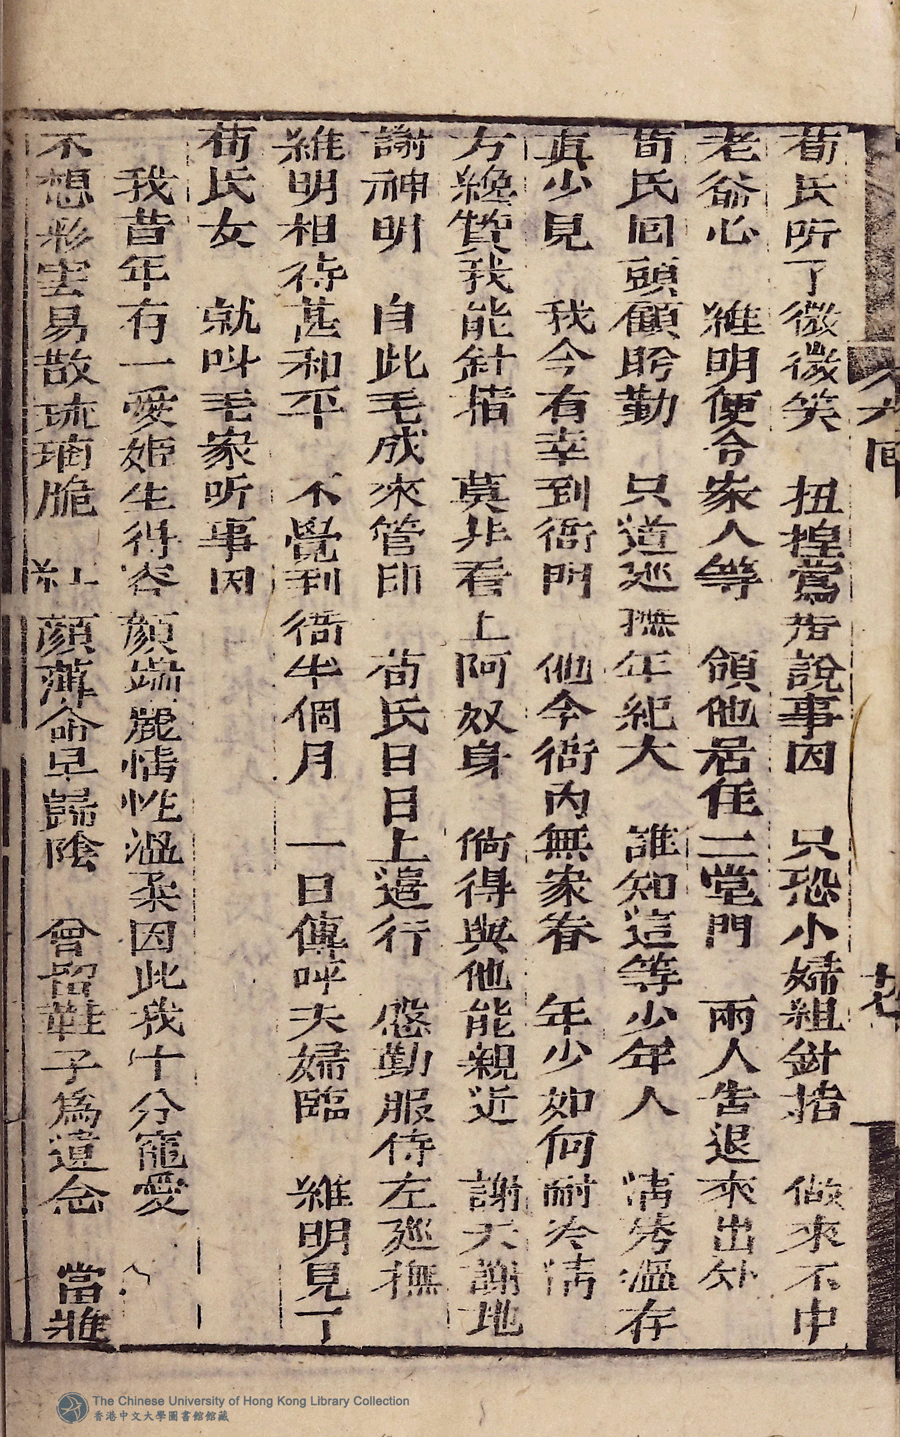 荀氏听了微微笑　扭揑鴬声說事因　只恐小婦粗針指　做來不中
老爺心　維明便令家人等　領他居住二堂門　兩人告退來出外
荀氏回頭顧盻勤　只道巡撫年紀大　誰知這等少年人　清秀溫存
真少見　我今有幸到衙門　他今衙內無家眷　年少如何耐冷清
方纔贊我能針指　莫非看上阿奴身　倘得與他能親近　謝天謝地
謝神明　自此毛成來管印　荀氏日日上邊行　慇勤服侍左廵撫
維明相待甚和平　不覺到衙半個月　一日傳呼夫婦臨　維明見了
荀氏女　就叫毛家听事因
我昔年有一愛姬生得容顏端麗情性溫柔因此我十分寵愛
不想彩雲易散琉璃脆　紅顏薄命早歸陰　曾留鞋子為遺念　當雅
六回
The Chinese University of Hong Kong Library Collection
香港中文大學圖書館館藏